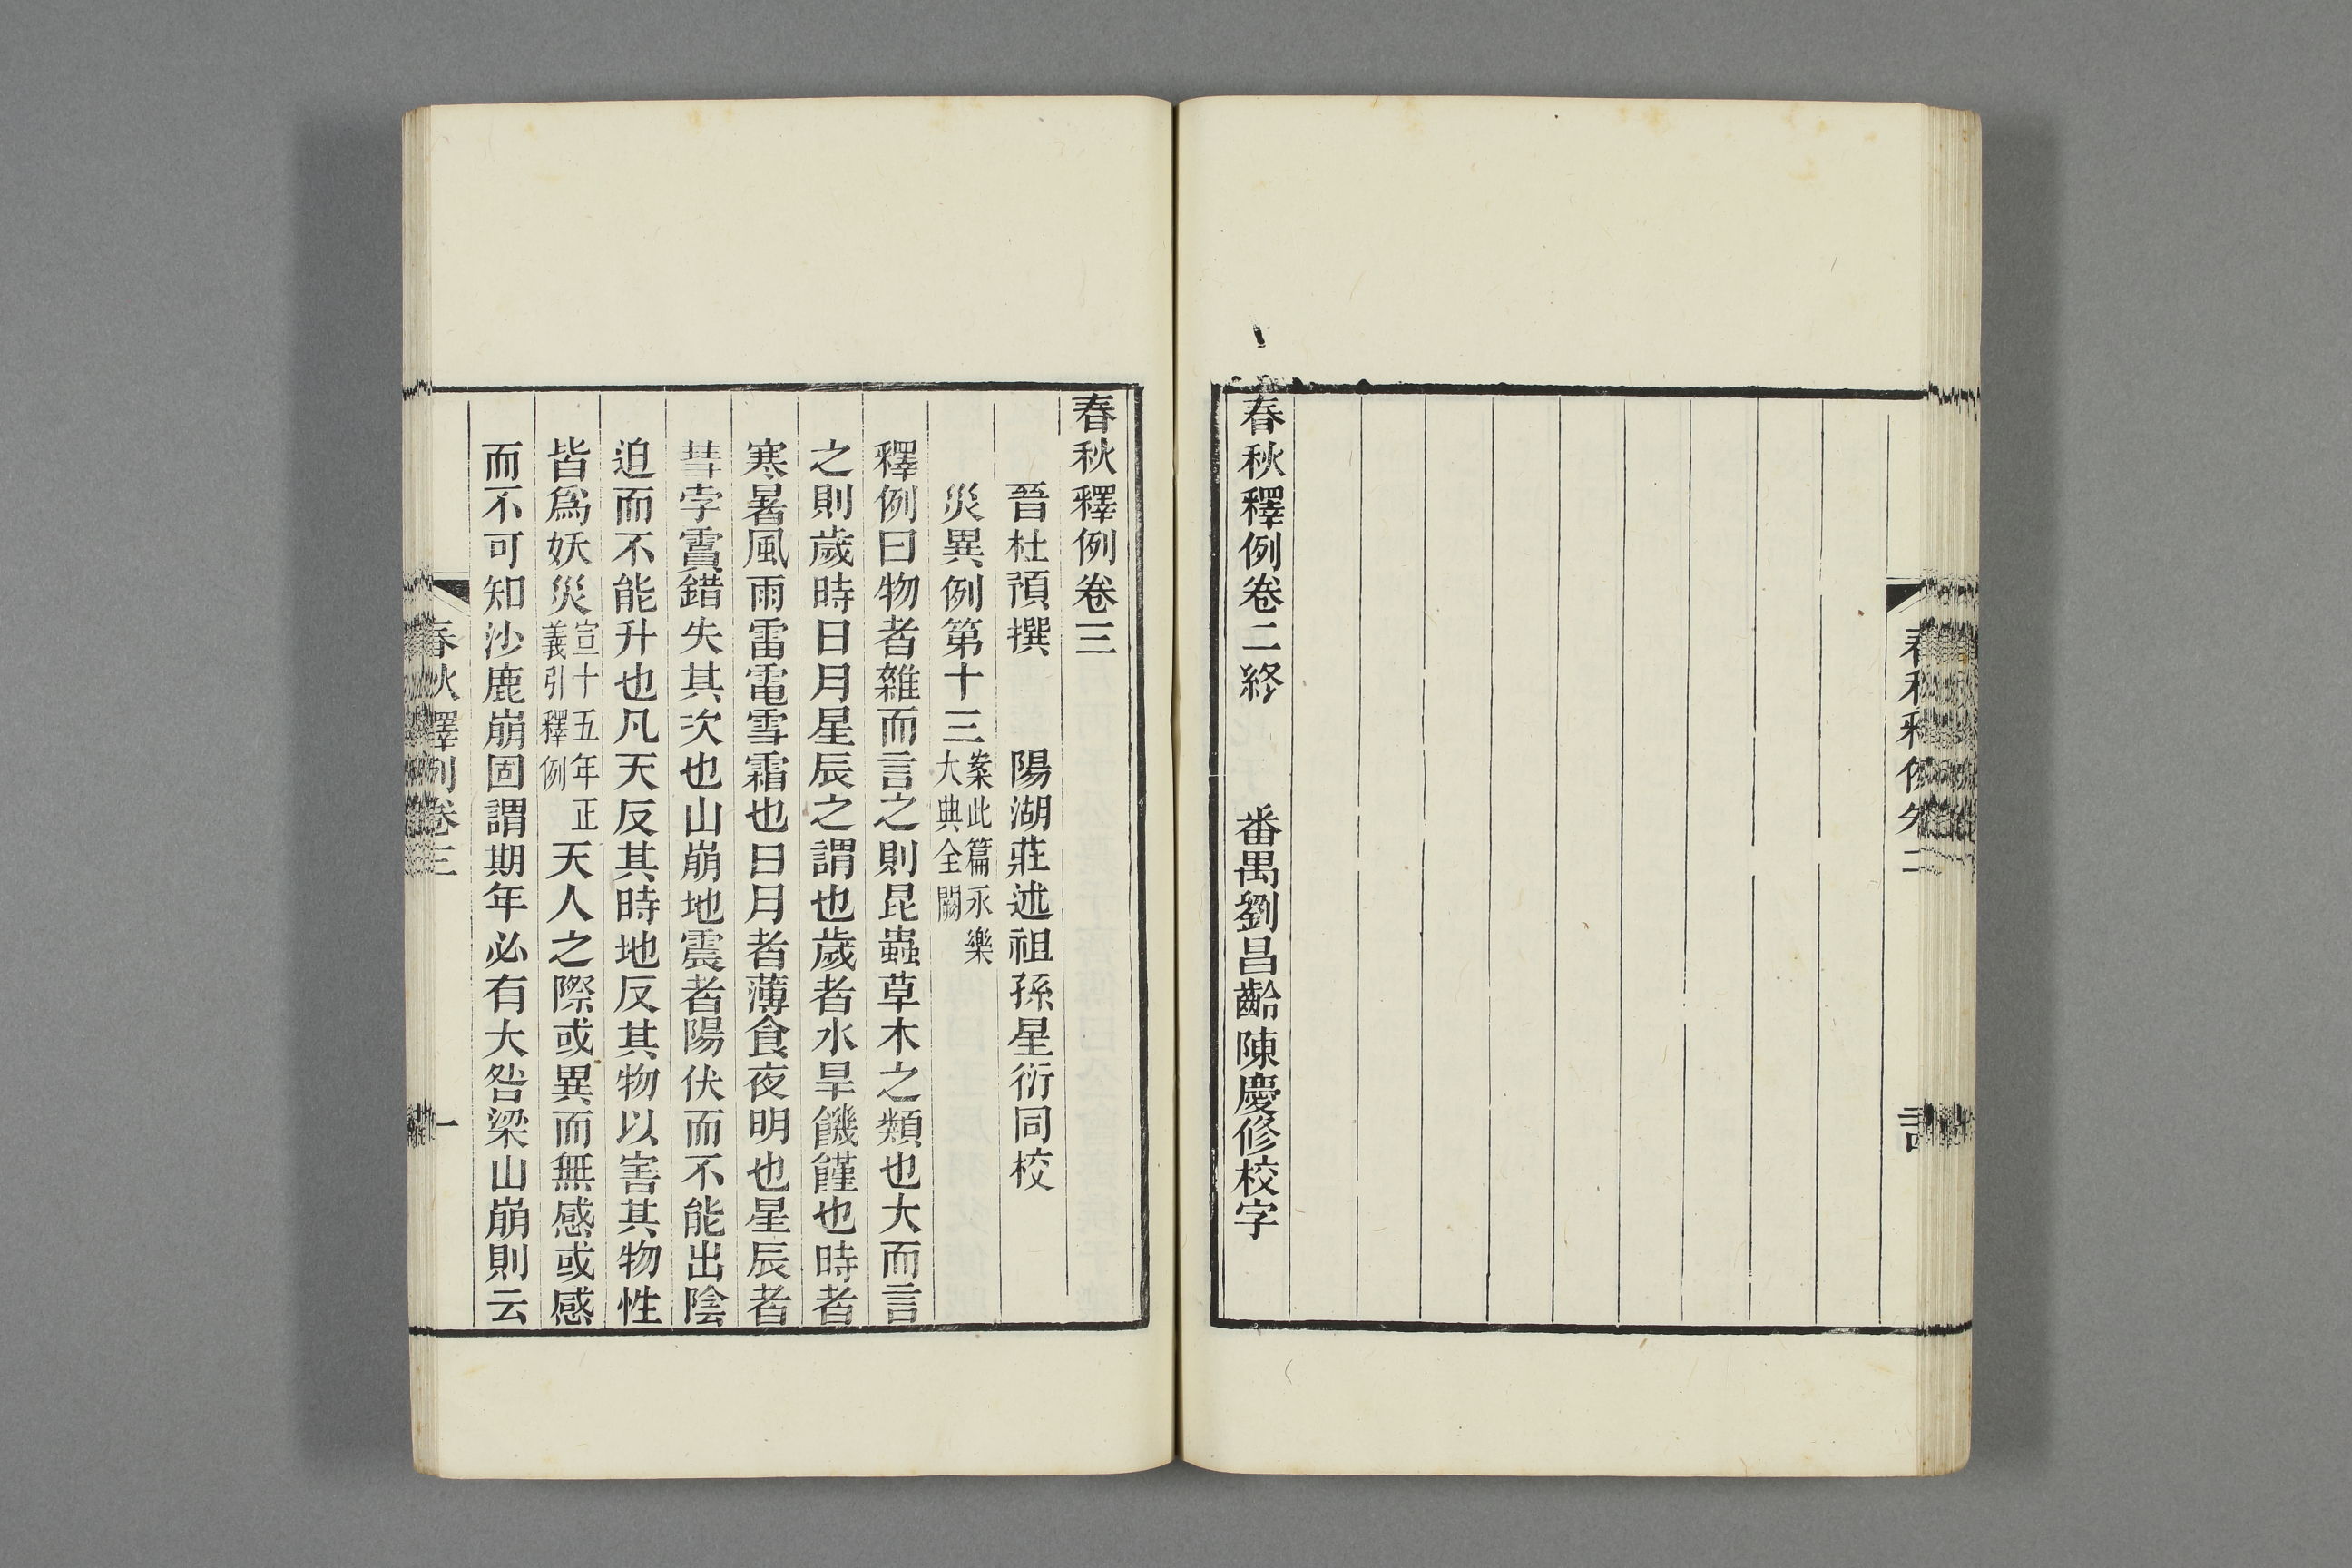 春秋釋例卷二終　番禺劉昌齡陳慶修校字
春秋釋例卷三
晉杜預撰　陽湖莊述祖孫星衍同校
災異例第十三案此篇永樂大典全闕
釋例曰物者雜而言之則昆蟲草木之類也大而言
之則歲時日月星辰之謂也歲者水旱饑饉也時者
寒暑風雨雷電雪霜也日月者薄食夜明也星辰者
彗孛霣錯失其次也山崩地震者陽伏而不能出陰
迫而不能升也凡天反其時地反其物以害其物性
皆爲妖災宣十五年正義引釋例天人之際或異而無感或感
而不可知沙鹿崩固謂期年必有大咎梁山崩則云
春秋釋例卷三　一